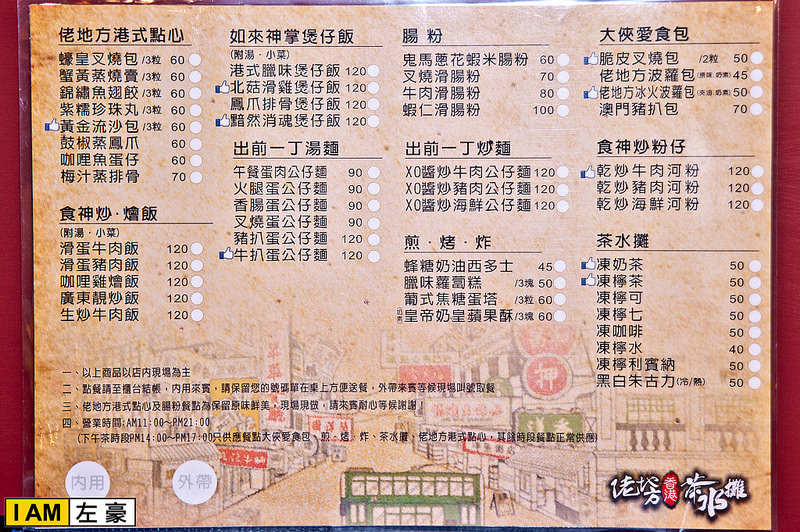 佬地方港式點心
蠔皇叉燒包/3粒 60
蟹黃蒸燒賣/3粒 60
錦繡魚翅餃/3粒 60
紫糯珍珠丸/3粒 60
黃金流沙包/3粒 60
鼓椒蒸鳳爪 60
咖哩魚蛋仔 60
梅汁蒸排骨 70
食神炒‧燴飯
(附湯‧小菜)
滑蛋牛肉飯 120
滑蛋豬肉飯 120
咖哩雞燴飯 120
廣東靚炒飯 120
生炒牛肉飯 120
如來神掌煲仔飯
(附湯‧小菜)
港式臘味煲仔飯 120
北菇滑雞煲仔飯 120
鳳爪排骨煲仔飯 120
黯然消魂煲仔飯 120
出前一丁湯麵
午餐蛋肉公仔麵 90
火腿蛋公仔麵 90
香腸蛋公仔麵 90
叉燒蛋公仔麵 90
豬扒蛋公仔麵 120
牛扒蛋公仔麵 120
腸 粉
鬼馬蔥花蝦米腸粉 60
叉燒滑腸粉 70
牛肉滑腸粉 80
蝦仁滑腸粉 100
出前一丁炒麵
XO醬炒牛肉公仔麵 120
XO醬炒豬肉公仔麵 120
XO醬炒海鮮公仔麵 120
煎‧烤‧炸
蜂糖奶油西多士 45
臘味蘿蔔糕 /3塊 50
葡式焦糖蛋塔 /3粒 60
皇帝奶皇蘋果酥/3塊 60
大俠愛食包
脆皮叉燒包 /2粒 50
佬地方波蘿包(原味.奶素) 45
佬地方冰火波蘿包(夾油.奶素) 50
澳門豬扒包 70
食神炒粉仔
乾炒牛肉河粉 120
乾炒豬肉河粉 120
乾炒海鮮河粉 120
茶水攤
凍奶茶 50
凍檸茶 50
凍檸可 50
凍檸七 50
凍咖啡 50
凍檸水 40
凍檸利賓納 50
黑白朱古力(冷/熱) 50
一、以上商品以店內現場為主
二、點餐請至櫃台結帳，內用來賓，請保留您的號碼單在桌上方便送餐，外帶來賓等候現場叫號取餐
三、佬地方港式點心及腸粉餐點為保留原味鮮美，現場現做，請來賓耐心等候謝謝！
四、營業時間:AM11:00~PM21:00
(下午茶時段PM14:00~PM17:00只供應餐點大俠愛食包、煎‧烤‧炸、茶水攤、佬地方港式點心，其餘時段餐點正常供應)
內用
外帶
佬地方 香港 茶水攤
I AM 左豪